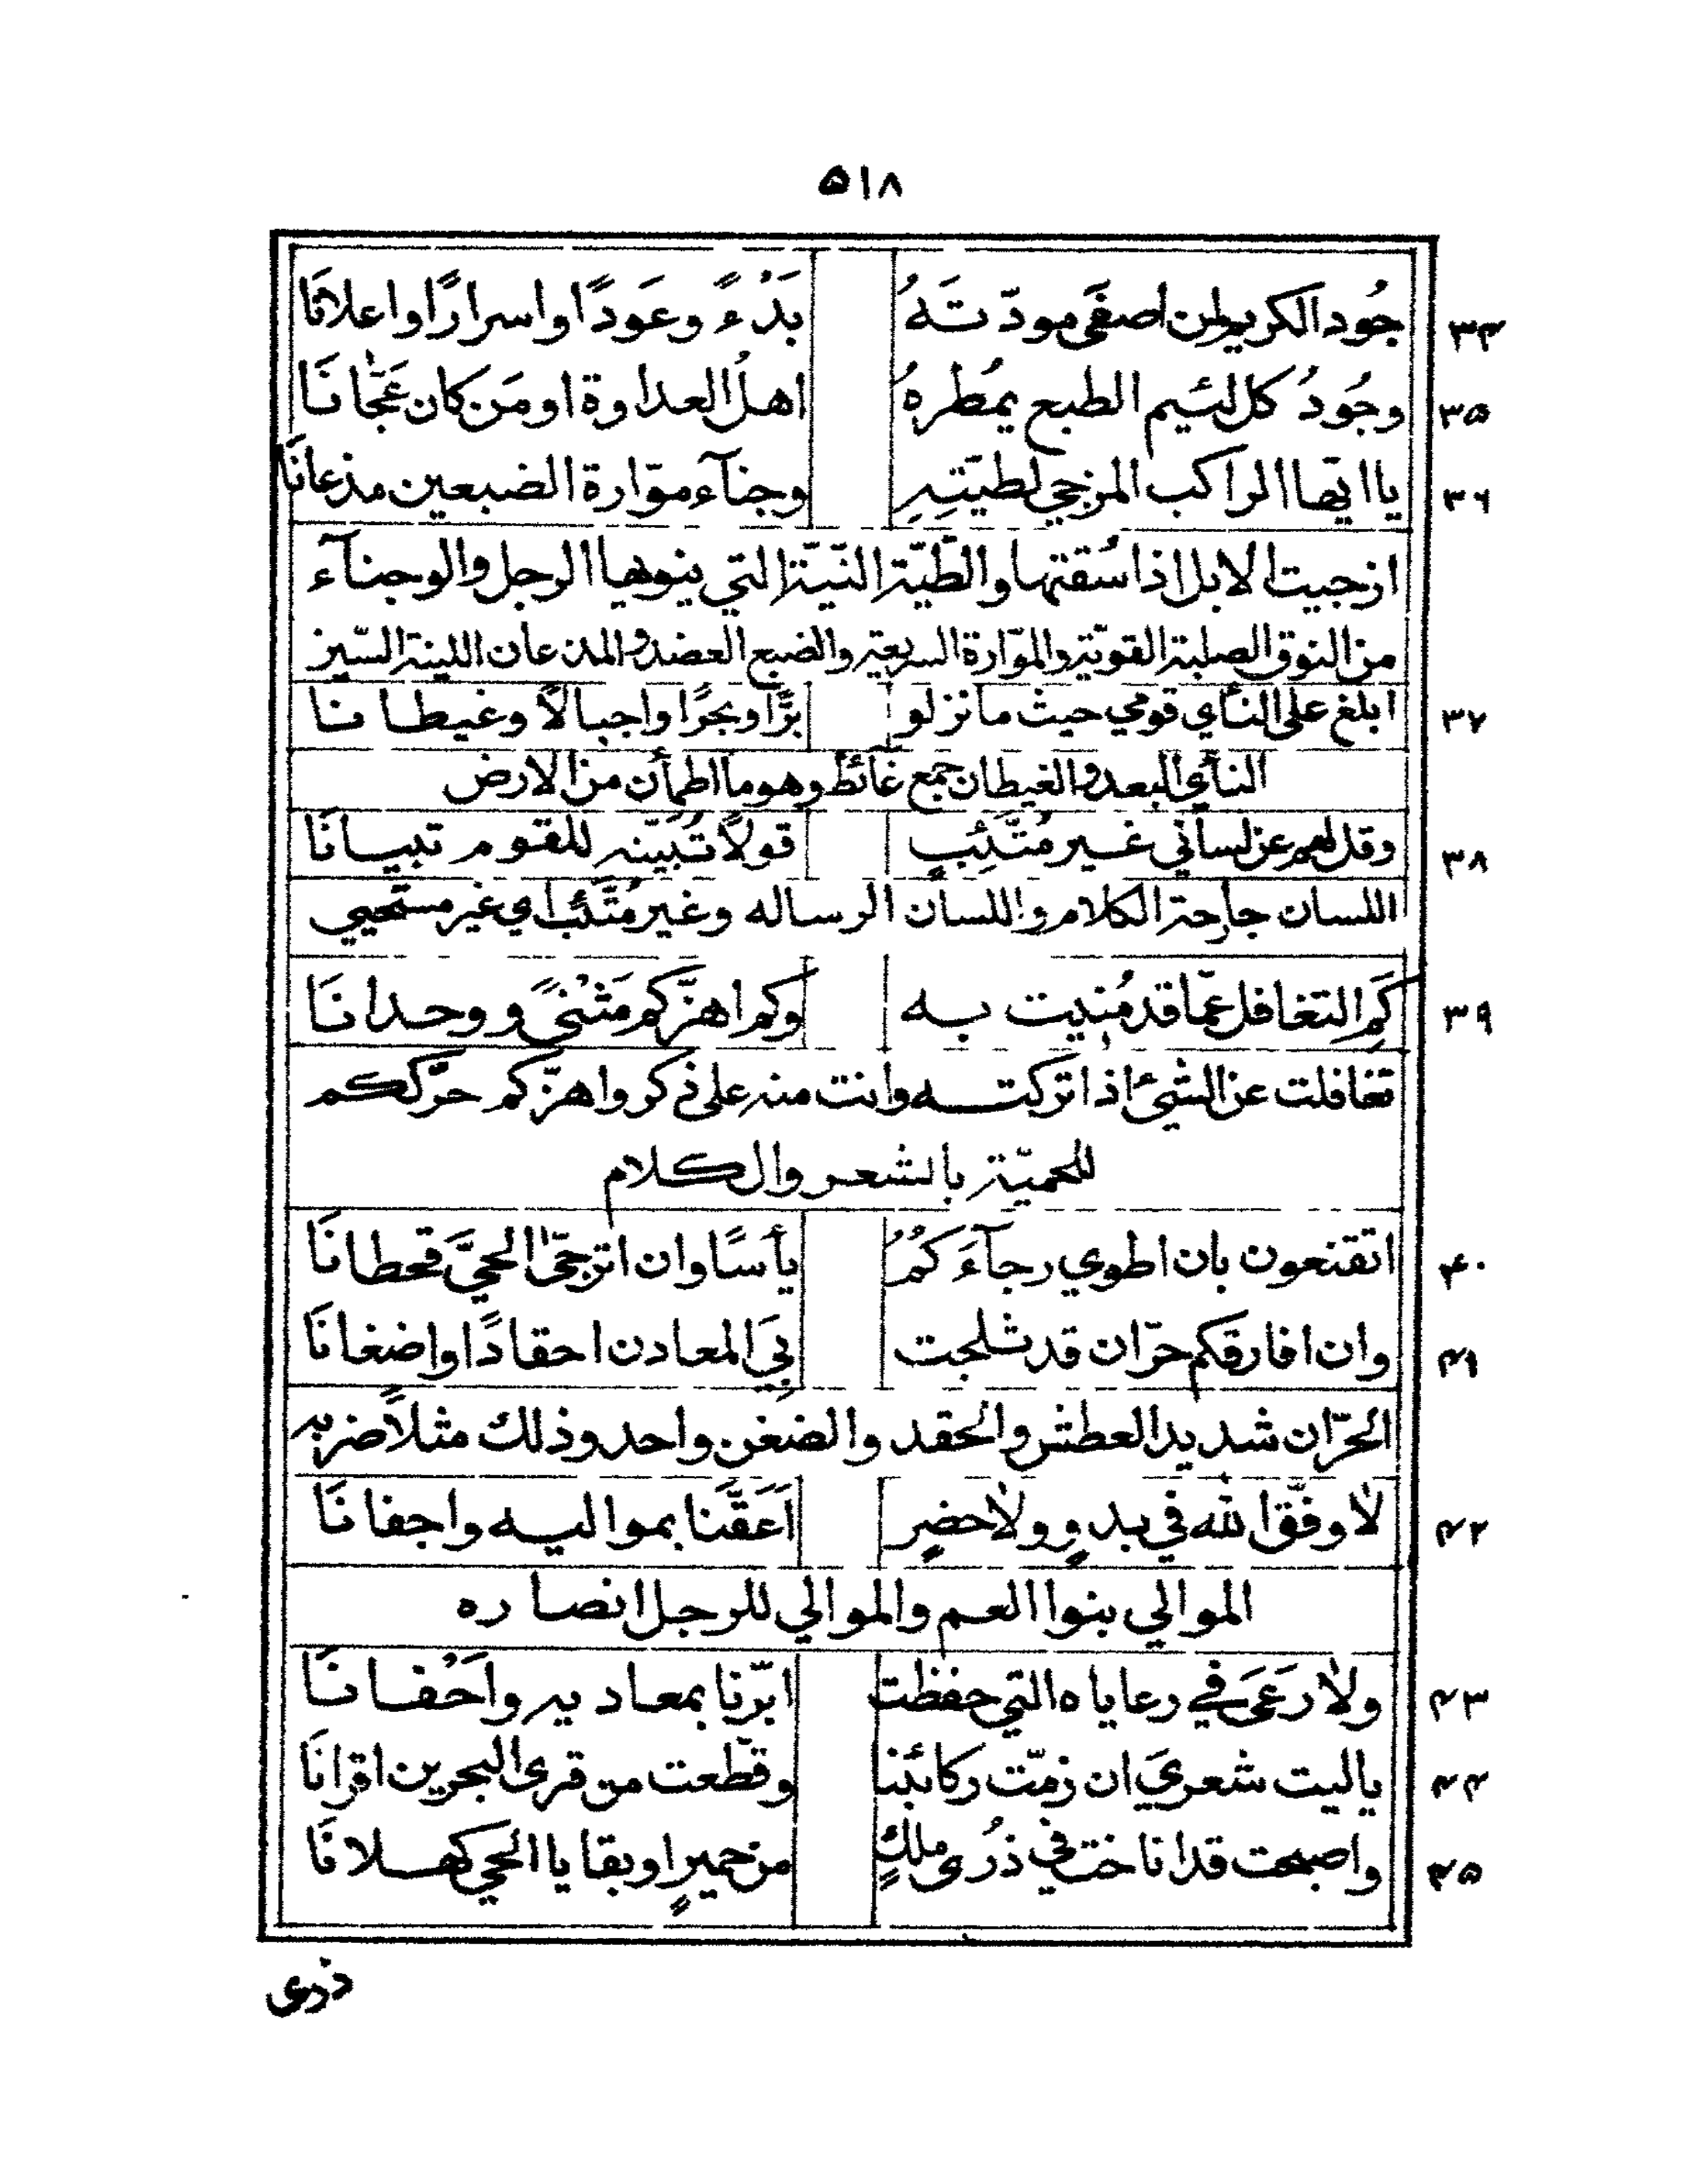 ٥١٨
٣٤ جُود الكريم لمن اصفَى مودّتَهُ بَدْءً وعَودًا واسرارًا واعلانَا
٣٥ وجُودُ كل لئيم الطبع يمُطرهُ اهلُ العداوة او مَن كان عَجّانَا
٣٦ يا ايّها الراكب المزجي لطيّتِهِ وجنآء موّارة الضبعين مذعانَا
ازجيت الابل اذا سُقتها والطّيّة النّيّة التي ينويها الرجل والوجنآء
من النوق الصلبة القويّة والموّارة السريعة والضبع العضد والمذعان اللينة السّير
٣٧ ابلغ على النأي قومي حيث ما نزلو برًّا وبحرًا واجبالاً وغيطانا
النأي البعد والغيطان جمع غائط وهو ما اطمأن من الارض
٣٨ وقل لهم عن لساني غير مُتَّئِبٍ قولاً تُبيّنه للقوم تبيانَا
اللسان جارحة الكلام واللسان الرساله وغير مُتَّئب اي غير مستحيي
٣٩ كَمِ التغافل عمّا قد مُنيت به وكم اهزّكم مَثْنىً ووحدانَا
تغافلت عن الشيئ اذا تركته وانت منه على ذكر واهزّكم حرّككم
للحميّة بالشعر والكلام
٤٠ اتقنعون بان اطوي رجآءَكُمُ يأسًا وان اترجّى الحيَّ قحطانَا
٤١ وان افارقكم حرّان قد شلجت بِيَ المعادن احقادًا واضغانَا
الحرّان شديد العطش والحقد والضغن واحد وذلك مثلاً ضربه
٤٢ لا وفّق الله في بدوٍ ولا حضرٍ اَعَقَّنا بمواليه واجفانَا
الموالي بنوا العم والموالي للرجل انصاره
٤٣ ولا رَعَىَ في رعاياه التي حفظت ابرّنا بمعاديه واَحْفانَا
٤٤ ياليت شعريَ ان زمّت ركائبنا وقطّعت من قرى البحرين اقرانَا
٤٥ واصبحت قد اناخت في ذُرى ملكٍ من حميرٍ او بقايا الحي كهلانَا
ذرى